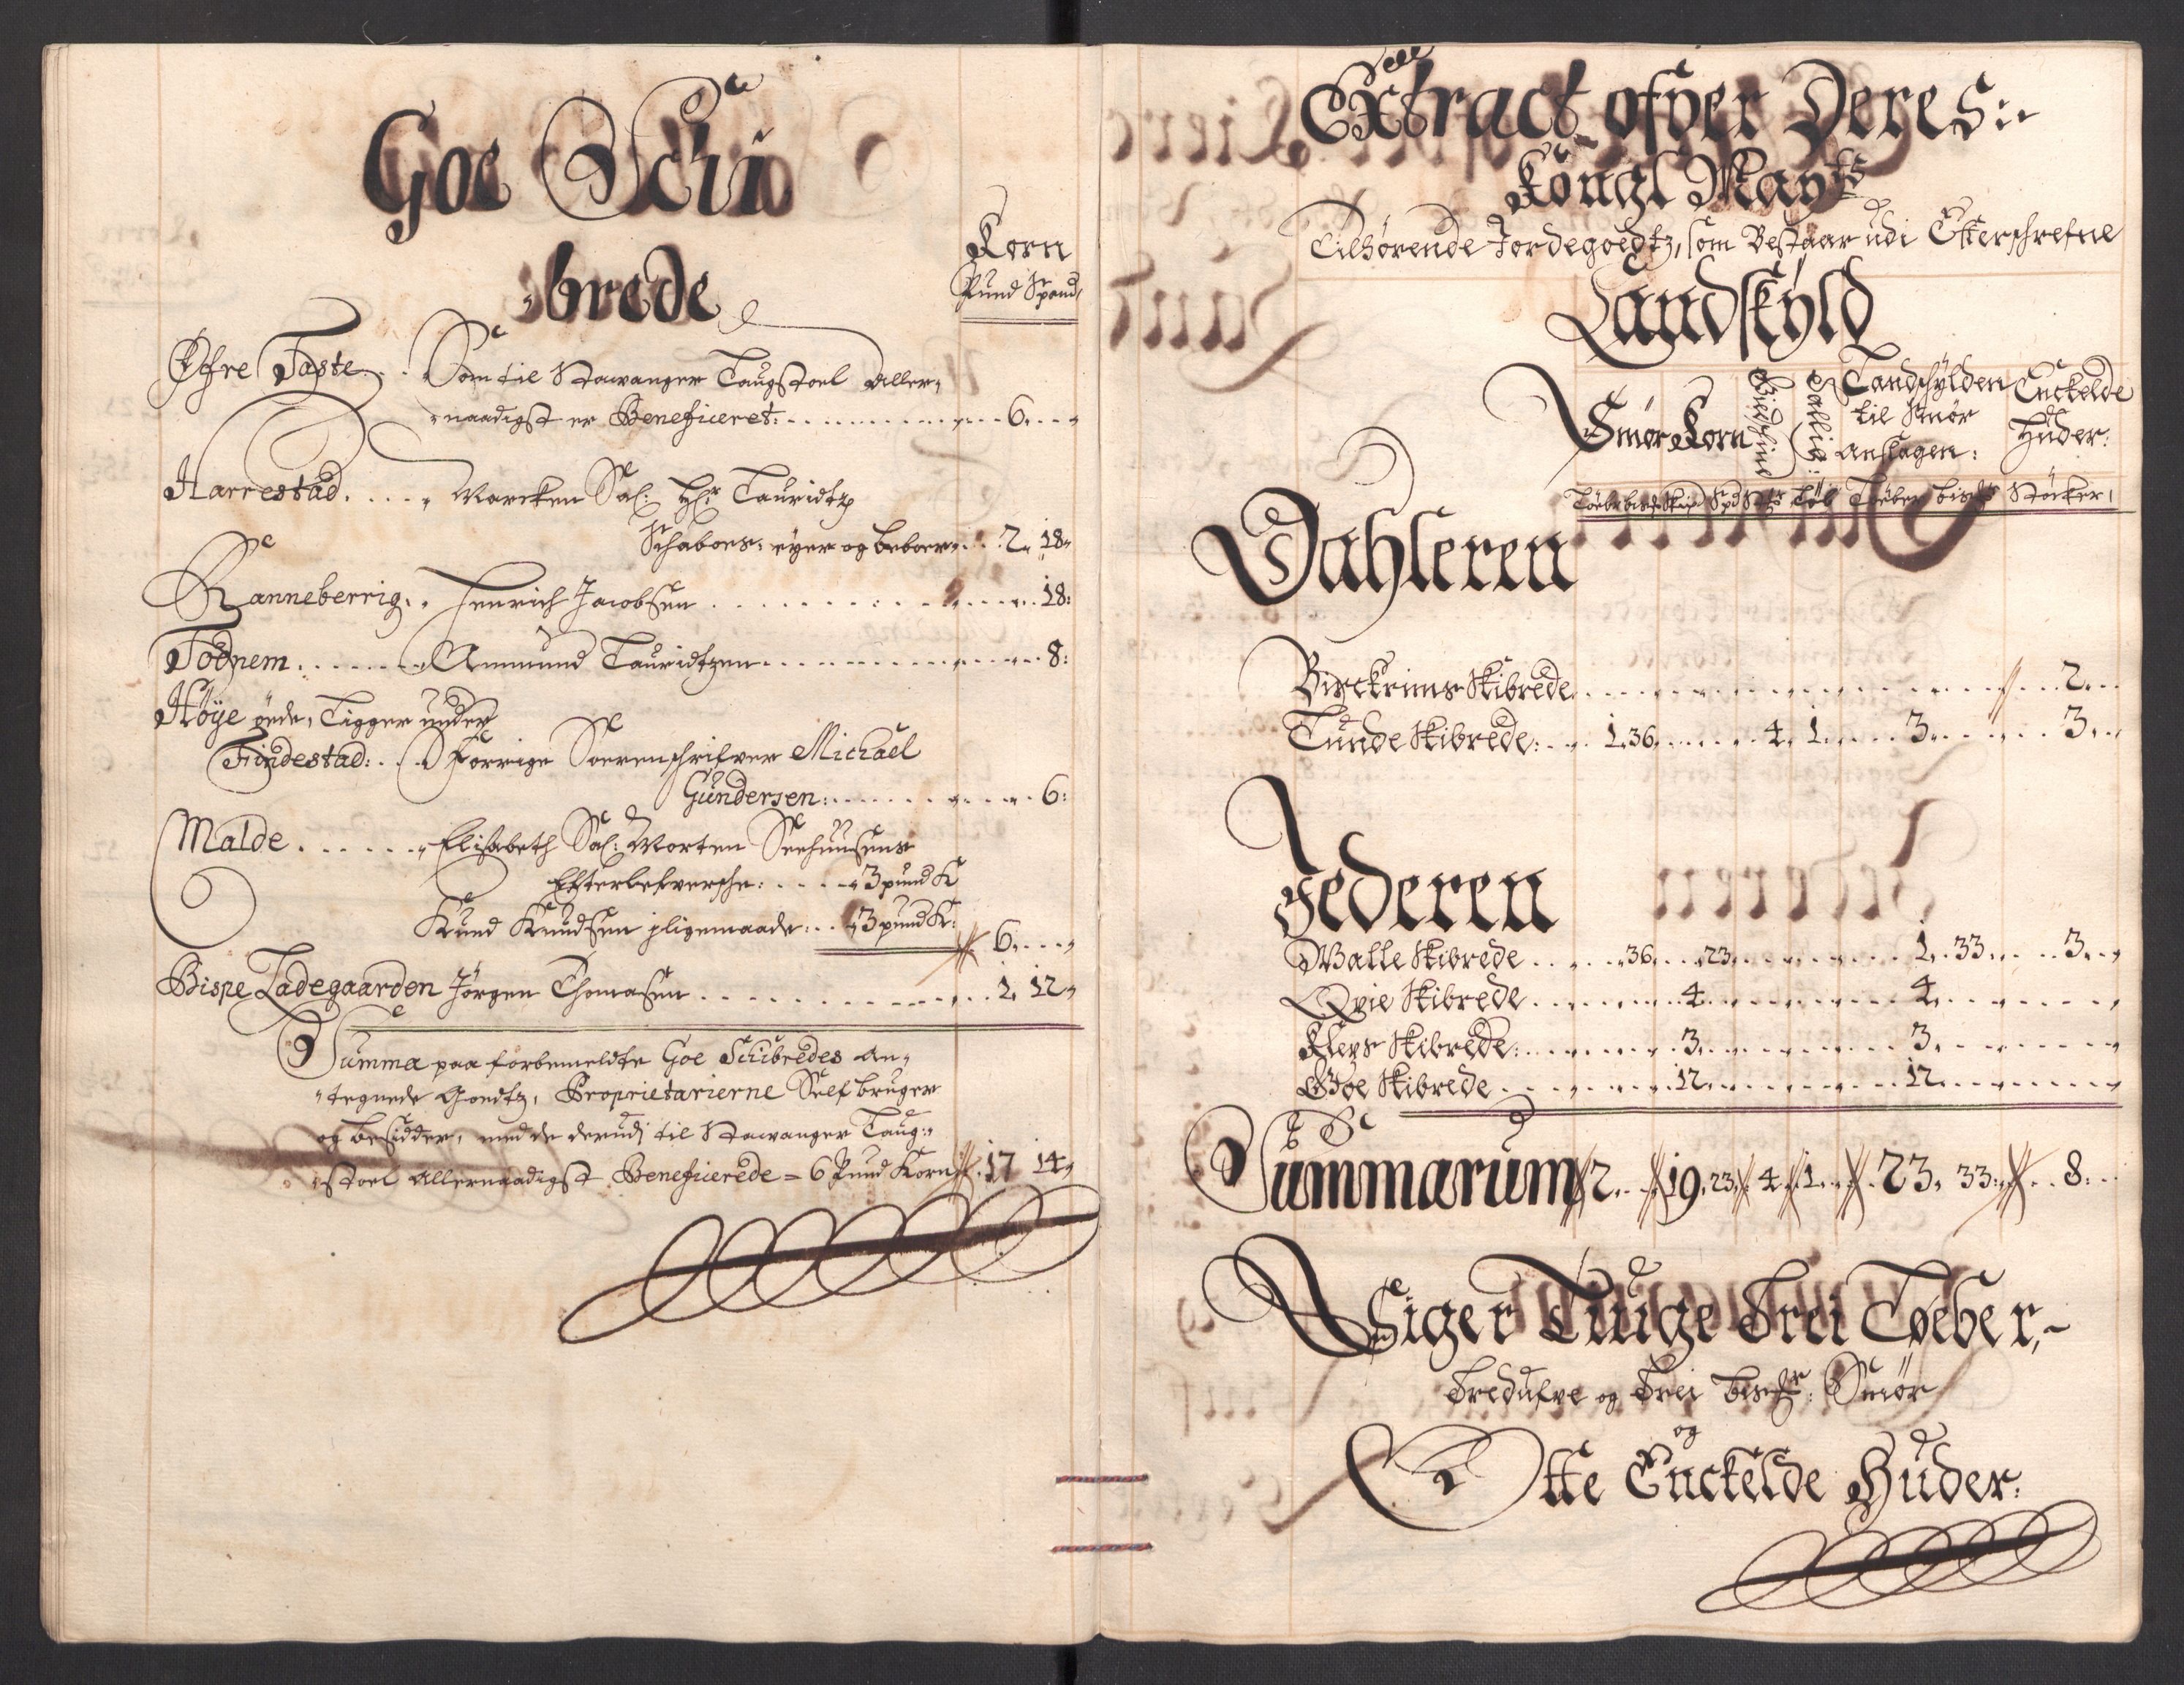 Goe Schi
-brede
Korn
Pund Spand
Øfre Taste . . Som til Stawanger Laugstoel Aller-
naadigst er Beneficeret: . . . . . 6. . . „
Harrestad. . . . „ Marcken Sal: Hr Lauridtz
Schaboes, eyer og beboer. . . 2„ 18„
Ranneberrig. „ Henrich Jacobsen . . . . . 18:
Todnem . . . . . „ Ammund Lauridtzen . . . . . 8:
Høye øede, Ligger under
Findestad: . . Forrige Sorenschrifver Michael
Gundersen: . . . . . 6:
Malde . . . . . „ Elisabeth Sal: Morten Seehuusens
Efterlefversche: . . . . „ 3 pund K
Knud Knudsen i ligemaade: . . „ 3 pund K: 6. . . „
Bispe Ladegaarden Jørgen Thomasen . . . . . 1. 12„
Summa paa forbemeldte Goe Schibredes An-
tegnede Goedtz, Proprietarierne Self bruger
og besidder, med de derudi til Stawanger Laug-
stoel Allernaadigst Beneficerede = 6 Pund Korn . 17 14„
Extract ofver Deres:
Kongl Mayts
Tilhørende Jordegoedtz, som Bestaar udi Efterschrefne
Landskyld
Smør Korn
Landschylden
til Smør
Anslagen:
Enckelde
Huder:
Dahleren
Birckrims Skibrede . . . . . 2. . .
Lunde Skibrede: . . . 1. 36. . . . 4. 1. . . . 3. . . . . 3. . .
Jederen
Walle Skibrede . . . . 36. . . 23. . . . . 1. 33. . . . 3. . „
Qvie Skibrede . . . . . 4. . . . . 4. . . . . „
Kleps Skibrede: . . . . . 3. . . . . 3. . . . . „
Goe Skibrede . . . . . 12. . . . . 12. . . . . „
Summarum 2. . . 19. 23. 4. 1. . . 23. 33. . . 8. . .
Siger Tiuge Trei Løeber,
Tredufve og Trei bismr: Smør
og
Otte Enckelde Huder: